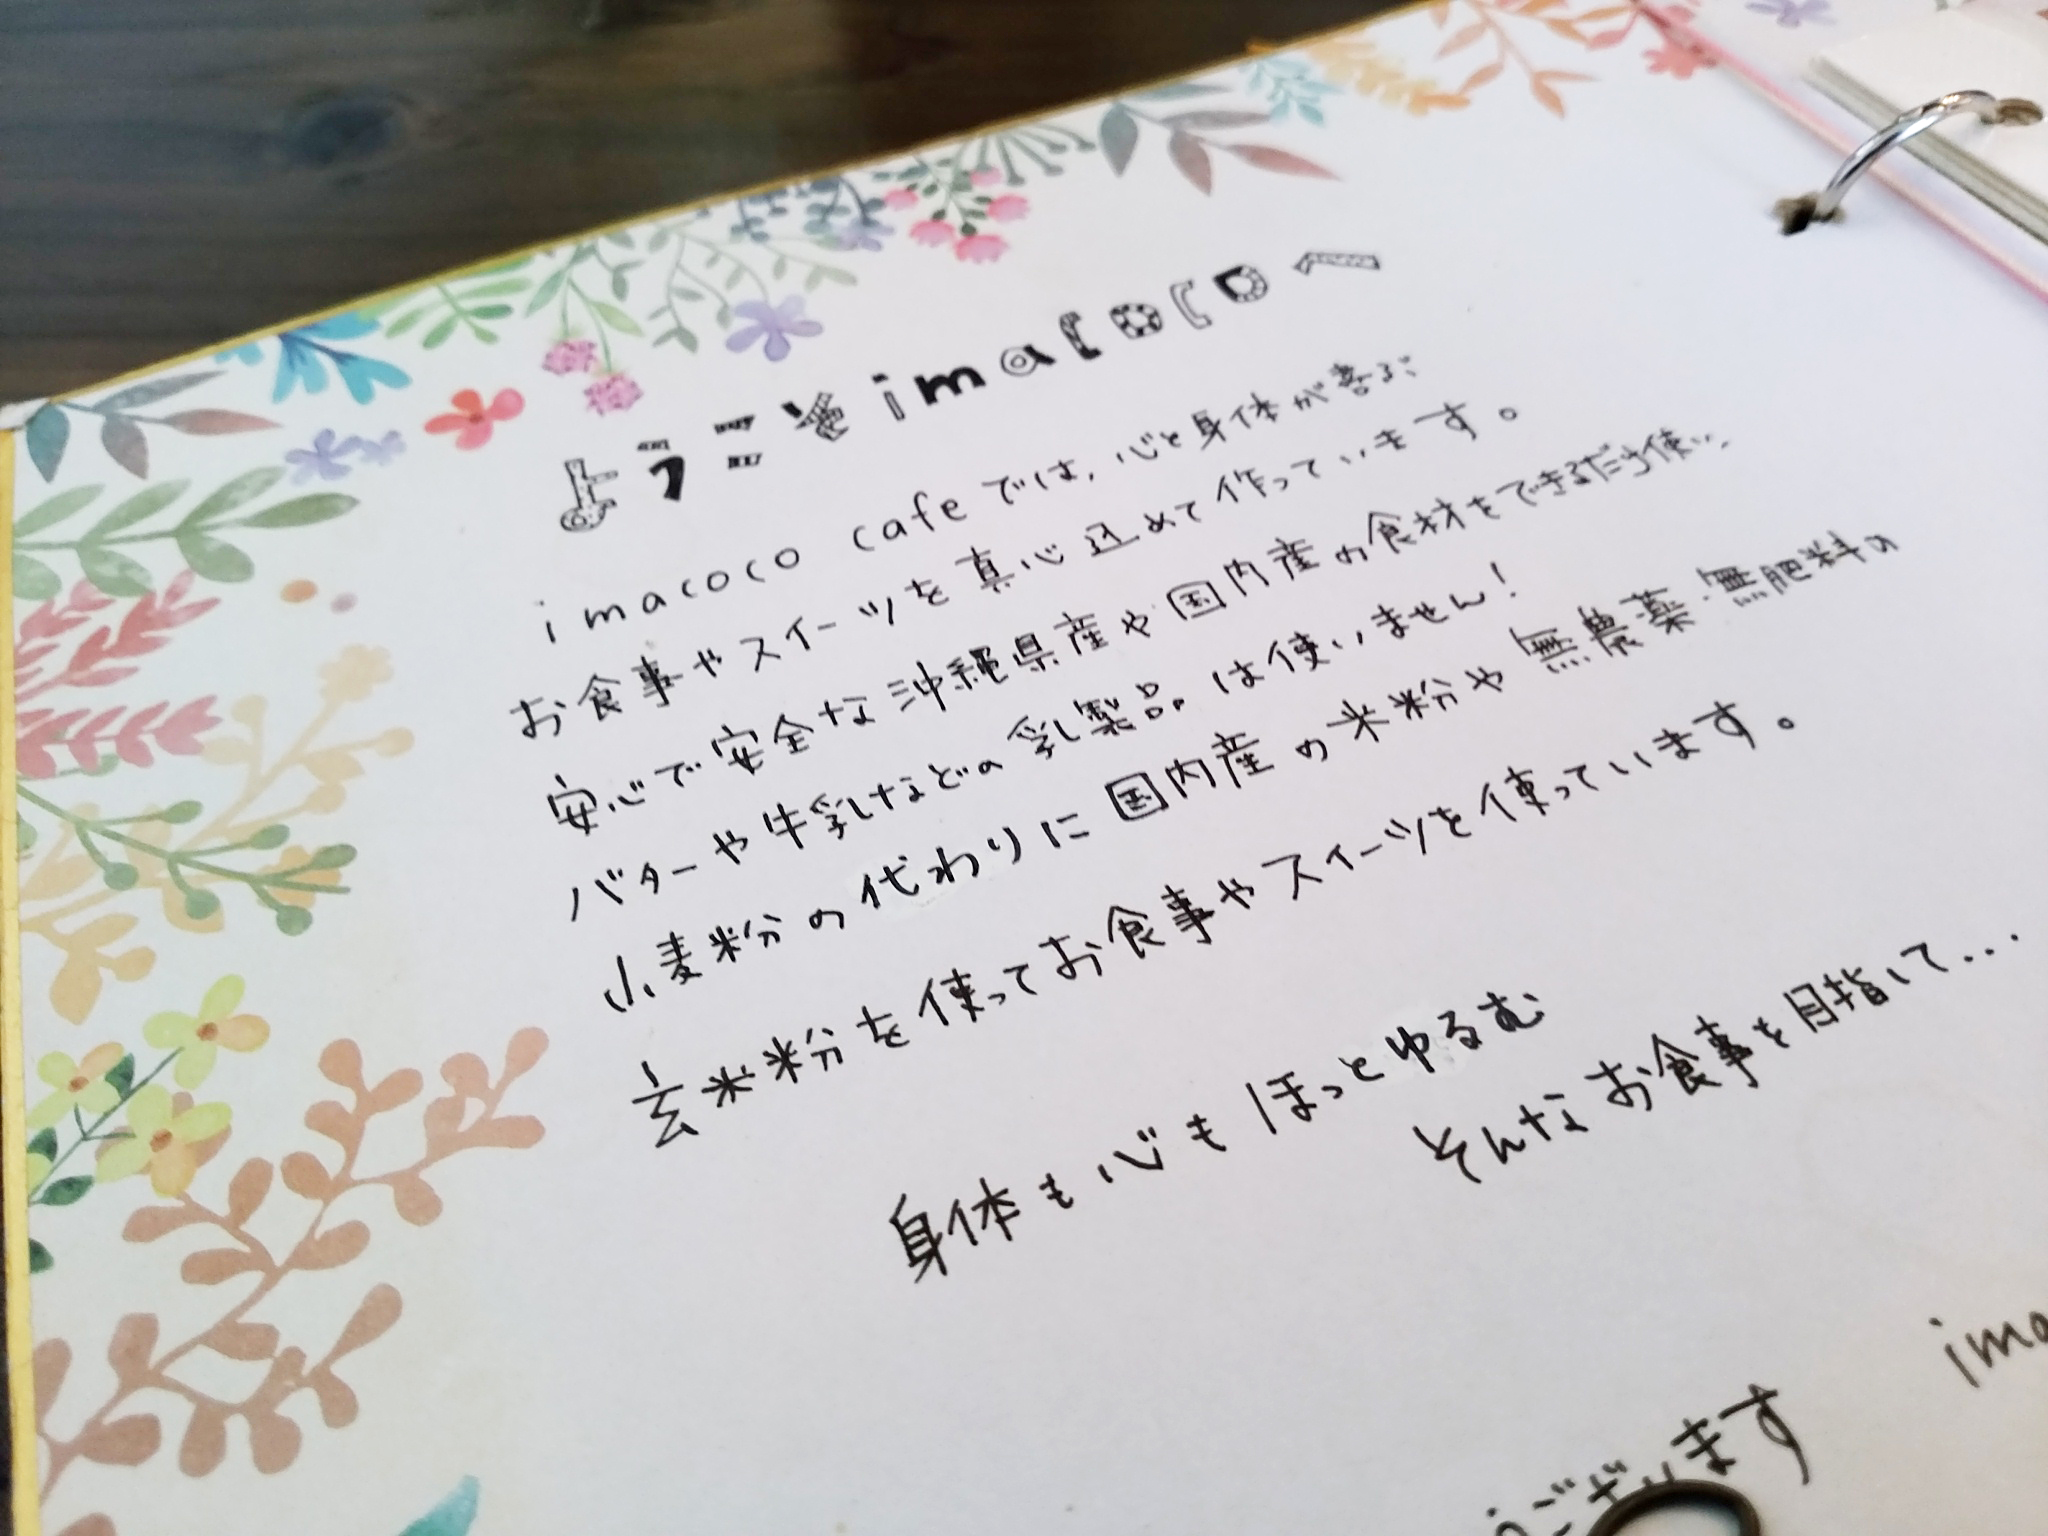 ようこそ imacocoへ
imacoco cafeでは、心と身体が喜ぶ
お食事やスイーツを真心込めて作っています。
安心で安全な沖縄県産や国内産の食材をできるだけ使い、
バターや牛乳などの乳製品は使いません!
小麦粉の代わりに国内産の米粉や無農薬・無肥料の
玄米粉を使ってお食事やスイーツを使っています。
身体も心もほっとゆるむ
そんなお食事を目指して…
ima
うございます